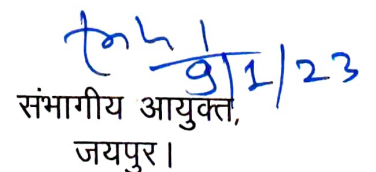 9/1/23
संभागीय आयुक्त,
जयपुर।